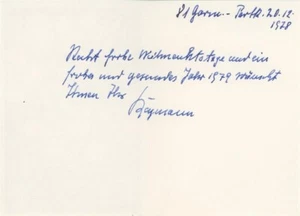 81 Garm.-Partk. 20.12.
1978
Recht frohe Weihnachtstage und ein
frohes und gesundes Jahr 1979 wünscht
Ihnen Ihr